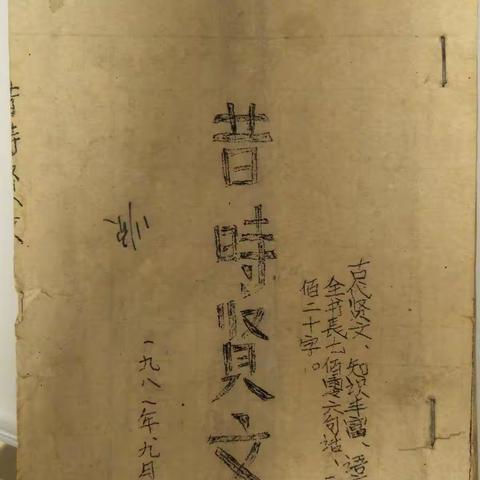 古代贤文、知识丰富、语
全书長七佰零六句话、
佰二十字。
昔時贤文
一九八一年九月
昔時贤文